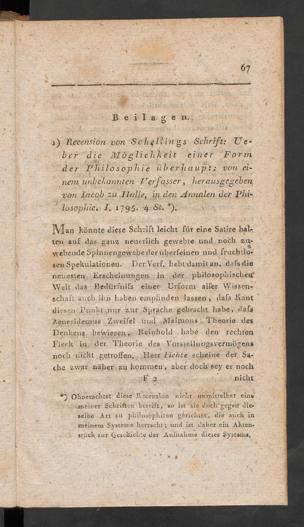 67
Beilagen.
1) Recension von Schellings Schrift: Ue-
ber die Möglichkeit einer Form
der Philosophie überhaupt; von ei-
nem unbekannten Verfasser, herausgegeben
von Iacob zu Halle, in den Annalen der Phi-
losophie. I. 1795. 4 St. *).
Man könnte diese Schrift leicht für eine Satire hal-
ten auf das ganz neuerlich gewebte und noch zu
webende Spinnengewebe der überfeinen und fruchtlo-
sen Spekulationen. Der Verf. hebt damit an, dass die
neuesten Erscheinungen in der philosophischen
Welt das Bedürfniss einer Urform aller Wissen-
schaft auch ihn haben empfinden lassen, dass Kant
diesen Punkt nur zur Sprache gebracht habe, dass
Aenesidemus Zweifel und Maimons Theorie des
Denkens bewiesen, Reinhold habe den rechten
Fleck in der Theorie des Vorstellungsvermögens
noch nicht getroffen. Herr Fichte scheine der Sa-
che zwar näher zu kommen, aber doch sey er noch
F 2 nicht
*) Ohnerachtet diese Recension nicht unmittelbar eine
meiner Schriften betrift, so ist sie doch gegen die-
selbe Art zu philosophiren gerichtet, die auch in
meinem Systeme herrscht; und ist daher ein Akten-
stück zur Geschichte der Aufnahme dieses Systems.